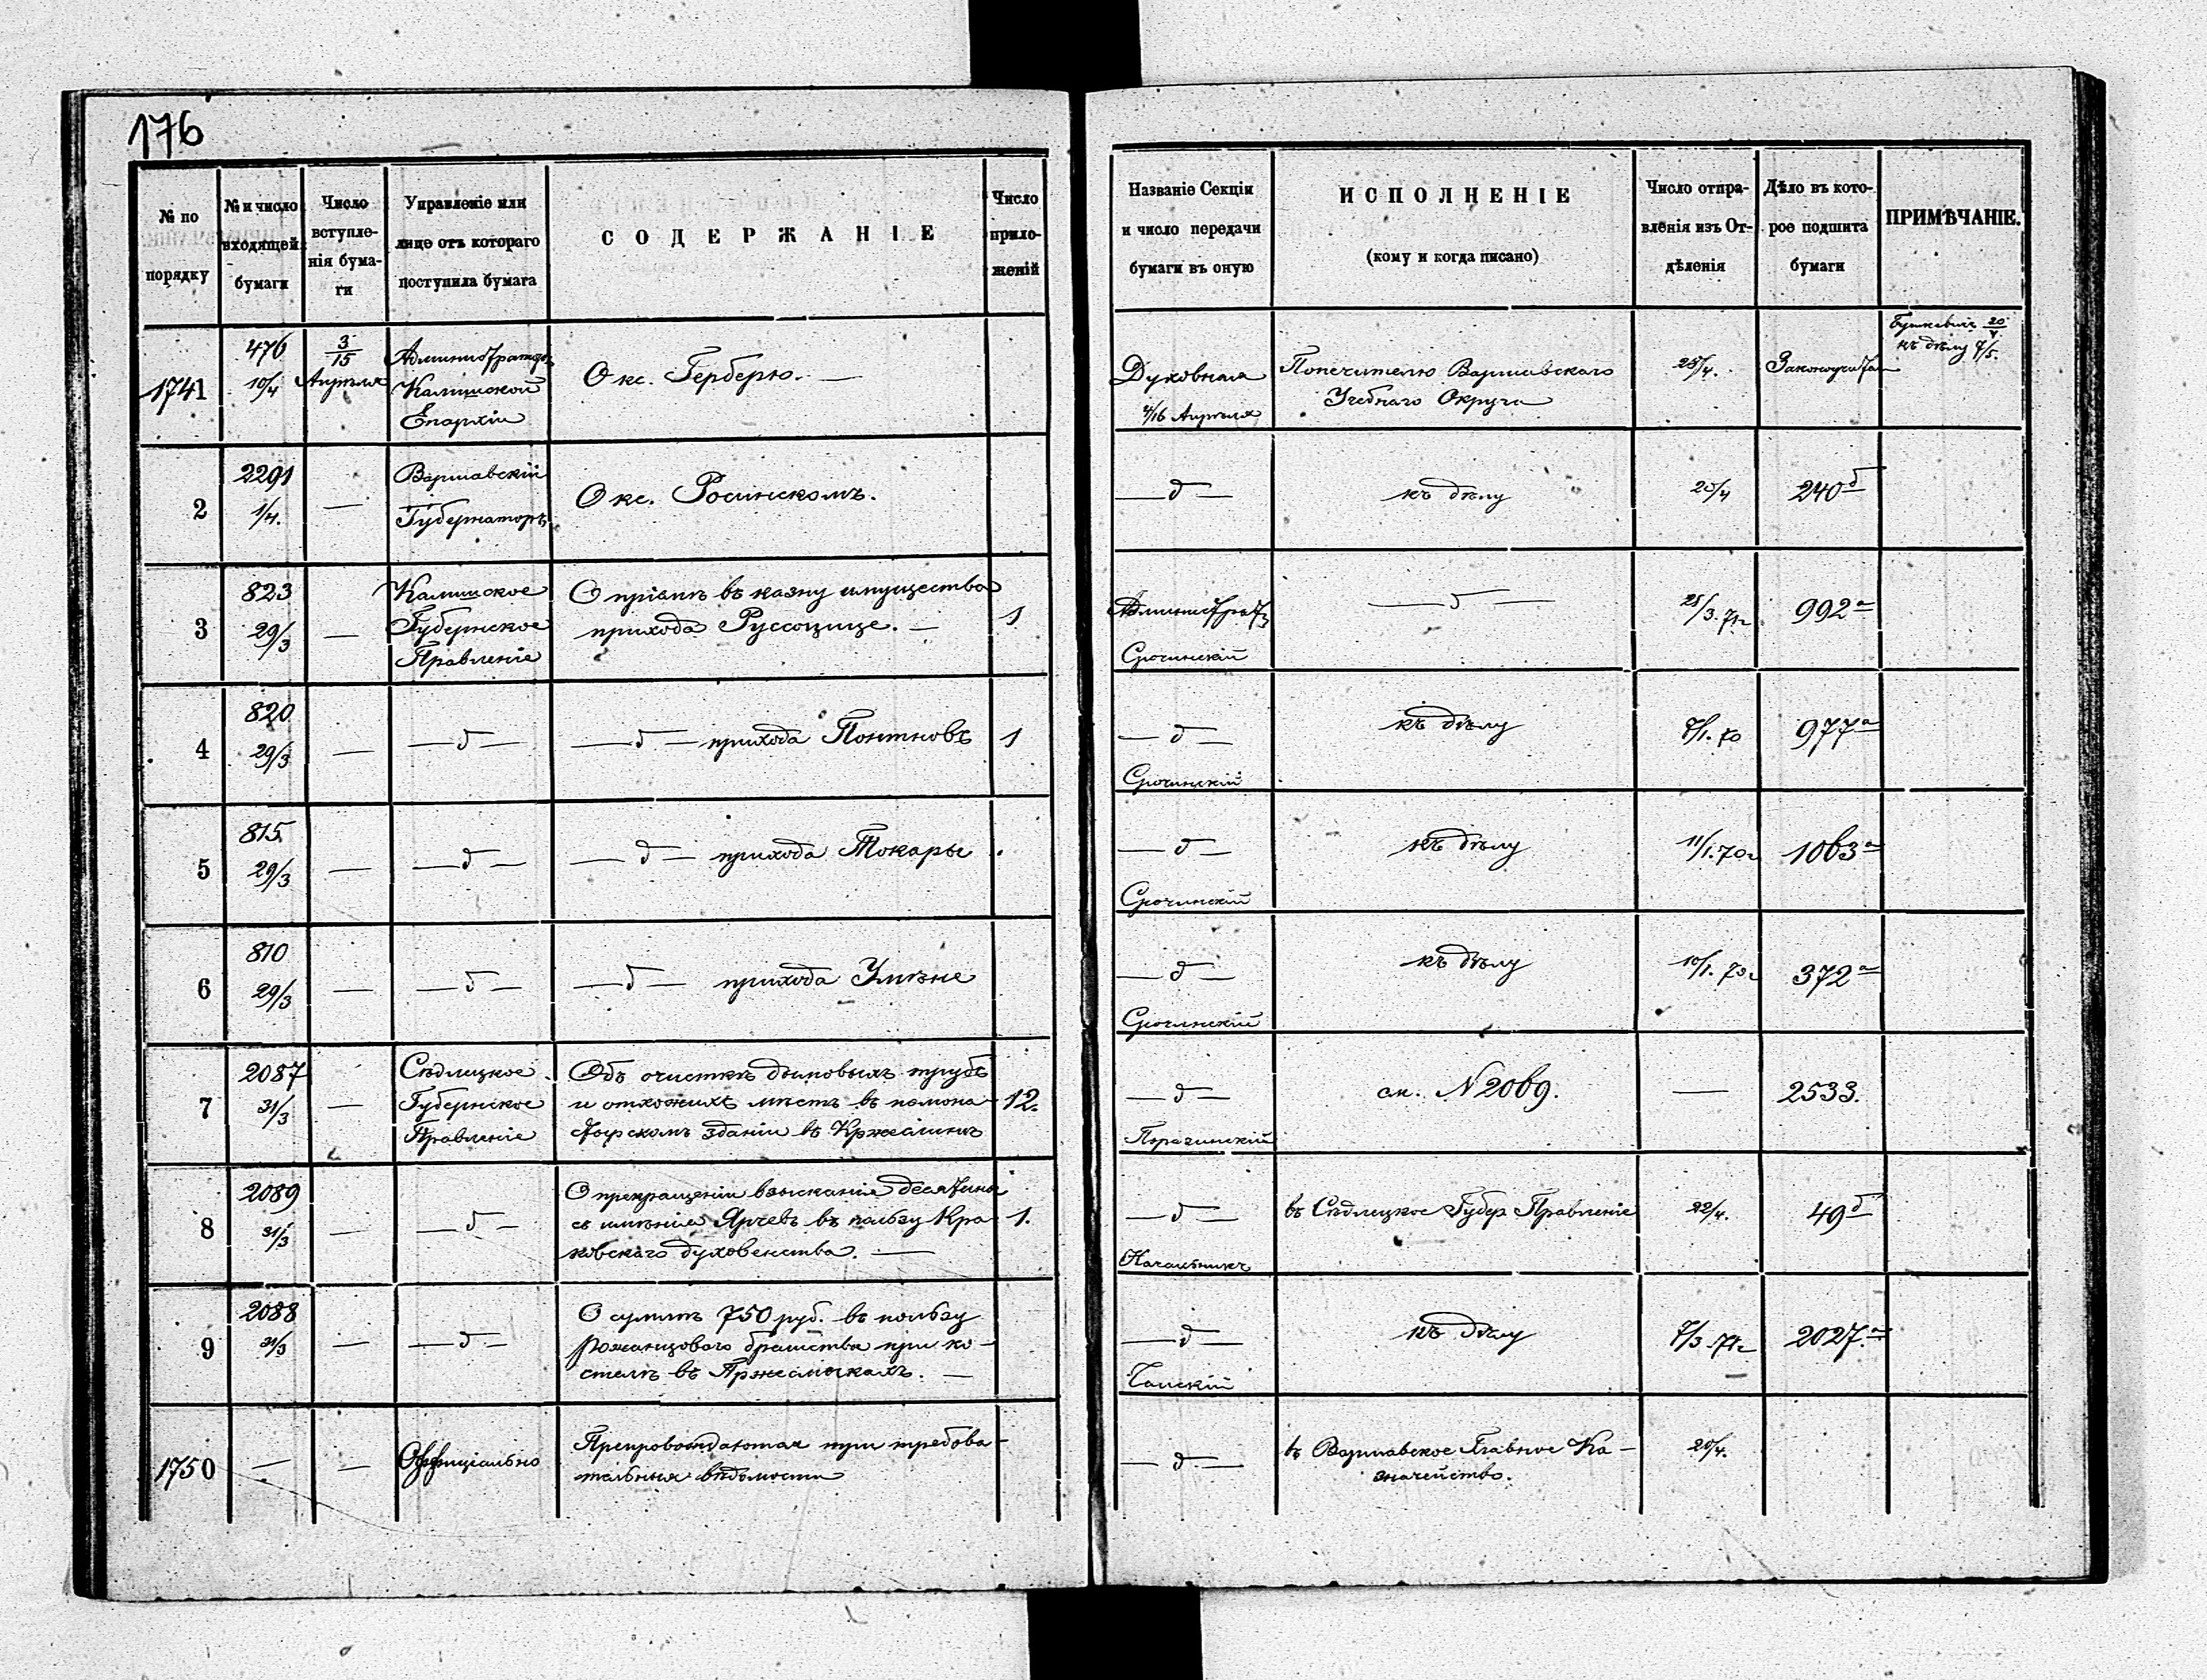 176
№ по порядку
№ и число входящей бумаги
Число вступле-нія бума-ги
Управленіе или лице отъ котораго поступила бумага
СОДЕРЖАНІЕ
Число прило-женій
Названіе Секціи и число передачи бумаги въ оную
ИСПОЛНЕНІЕ
(кому и когда писано)
Число отпра-вленія изъ От-дѣленія
Дѣло въ кото-рое подшита бумаги
ПРИМѢЧАНІЕ.
1741
476
10/4
3/15
Апрѣля
Администраторъ
Калишской
Епархіи
О кс. Герберю. —
Духовная
4/16 Апрѣля
Попечителю Варшавскаго
Учебнаго Округа
25/4.
20/4
къ дѣлу 7/5.
2
2291
1/4.
—
Варшавскій
Губернаторъ
О кс. Росинскомъ.
— д —
къ дѣлу
25/4
240 б
3
823
29/3
—
Калишское
Губернское
Правленіе
О пріемѣ въ казну имущества
прихода Руссоцице. —
1
Срочинскій
— д —
25/3. 71г
992 а
4
820
29/3
—
— д —
— д — прихода Понтновъ
1
— д —
Срочинскій
къ дѣлу
8/1. 70
977 а
5
815
29/3
—
— д —
— д — прихода Токары
— д —
Срочинскій
къ дѣлу
11/1. 70г
1063 а
6
810
29/3
—
— д —
— д — прихода Умѣне
— д —
Срочинскій
къ дѣлу
10/1. 70г
372 а
7
2087
31/3
—
Сѣдлецкое
Губернское
Правленіе
Объ очисткѣ дымовыхъ трубъ
и отхожихъ мѣстъ въ помона-
стырскомъ зданіи въ
12.
— д —
см. № 2069.
—
2533.
8
2089
31/3
—
— д —
О прекращеніи взысканія десятины
съ имѣнія Ярчевъ въ пользу Кра-
ковскаго духовенства. —
1.
— д —
Начальникъ
въ Сѣдлецкое Губер Правленіе
22/4.
49 б
9
2088
31/3
—
— д —
О суммѣ 750 руб. въ пользу
рожанцоваго братства при ко-
стелѣ въ Пржесмыкахъ. —
— д —
къ дѣлу
7/3. 71г
2027. а
1750
—
—
Оффиціально
Препровождаются при требова-
тельныя вѣдомости
— д —
въ Варшавское Главное Ка-
значейство.
20/4.